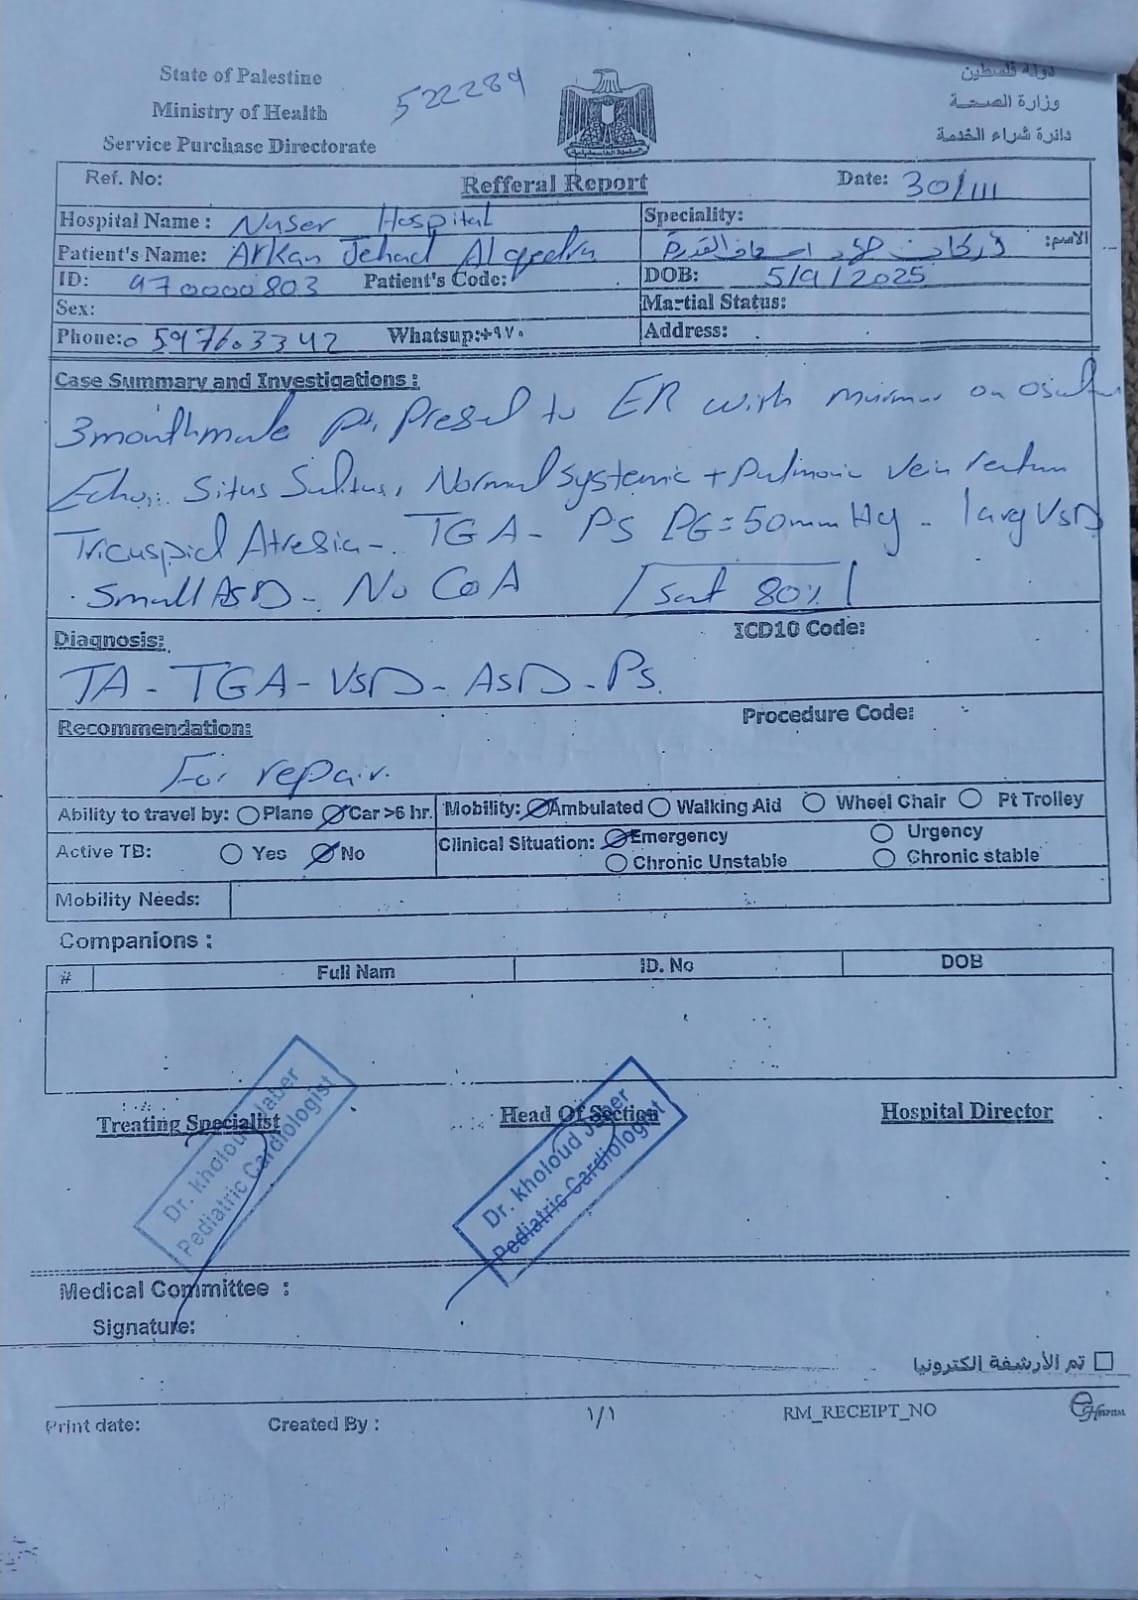 State of Palestine
Ministry of Health
Service Purchase Directorate
522289
دولة فلسطين
وزارة الصحة
دائرة شراء الخدمة
Ref. No:
Refferal Report
Date: 30/11/
Hospital Name : Naser Hospital
Speciality:
Patient's Name: Arkan Jehad Alqedra
الاسم:
ID: 970000803 Patient's Code:
DOB: 5/9/2025
Sex:
Martial Status:
Phone: 0597603342 Whatsup:+٩٧٠
Address:
Case Summary and Investigations :
3 month male pt. Presel to ER with murmur on
Echo: Situs Solitus, Normal systemic + Pulmonic vein
Tricuspid Atresia - TGA - PS PG = 50mmHg - larg VSD
Small ASD - No CoA sat 80%
Diagnosis:
ICD10 Code:
TA - TGA - VSD - ASD - PS.
Recommendation:
Procedure Code:
For repair.
Ability to travel by: Plane Car >6 hr.
Mobility: Ambulated Walking Aid Wheel Chair Pt Trolley
Active TB: Yes No
Clinical Situation: Emergency Urgency
Chronic Unstable Chronic stable
Mobility Needs:
Companions :
# Full Nam ID. No DOB
Treating Specialist
Head Of Section
Hospital Director
Dr. kholoud Jaber
Pediatric Cardiologist
Dr. kholoud Jaber
Pediatric Cardiologist
Medical Committee :
Signature:
تم الأرشفة الكترونيا
Print date:
Created By :
١/١
RM_RECEIPT_NO
eHospital